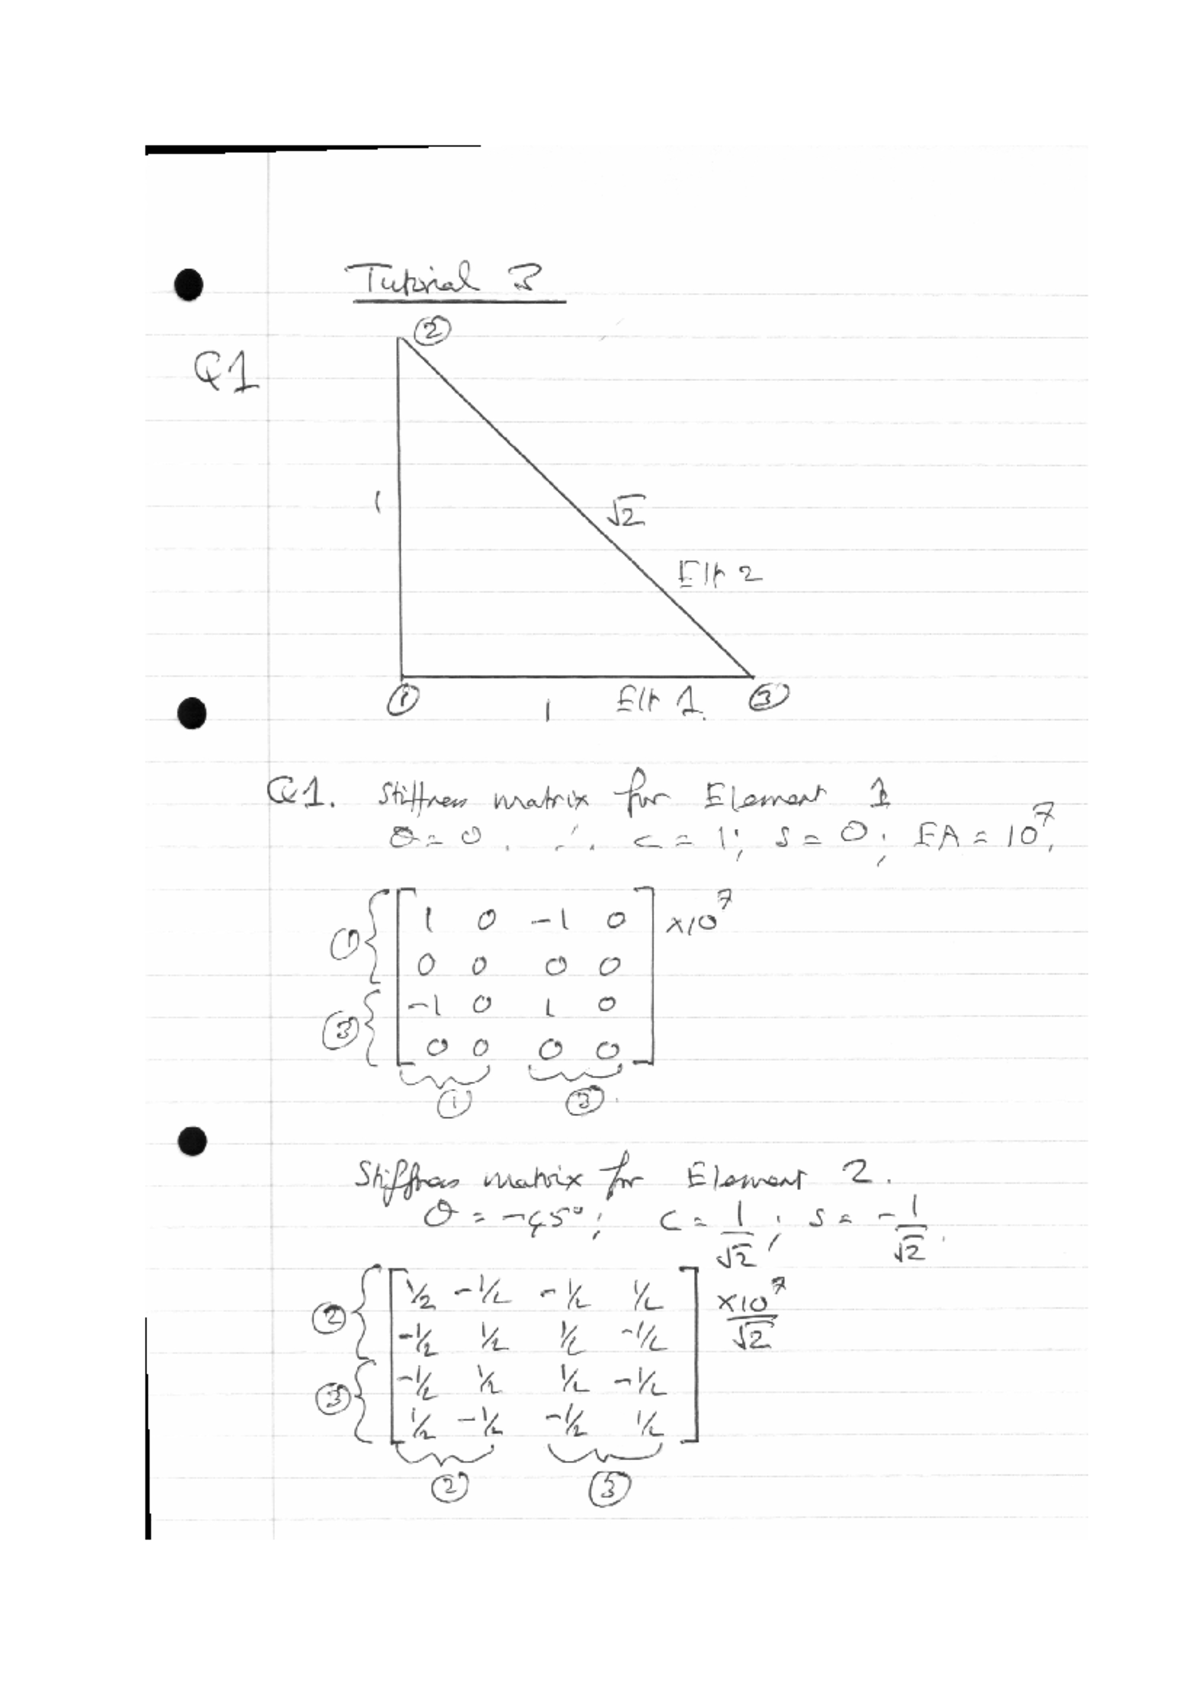 Tutorial 3
②
Q1
1
√2
Elt 2
① 1 Elt 1. ③
Q1. Stiffness matrix for Element 1
θ = 0 . ∴ c = 1; s = 0; EA = 10⁷,
① [ 1 0 -1 0 ] ×10⁷
0 0 0 0
③ -1 0 1 0
0 0 0 0
① ③.
Stiffness matrix for Element 2.
θ = -45°; c = 1/√2; s = -1/√2.
② [ 1/2 -1/2 -1/2 1/2 ] ×10⁷/√2
-1/2 1/2 1/2 -1/2
③ -1/2 1/2 1/2 -1/2
1/2 -1/2 -1/2 1/2
② ③